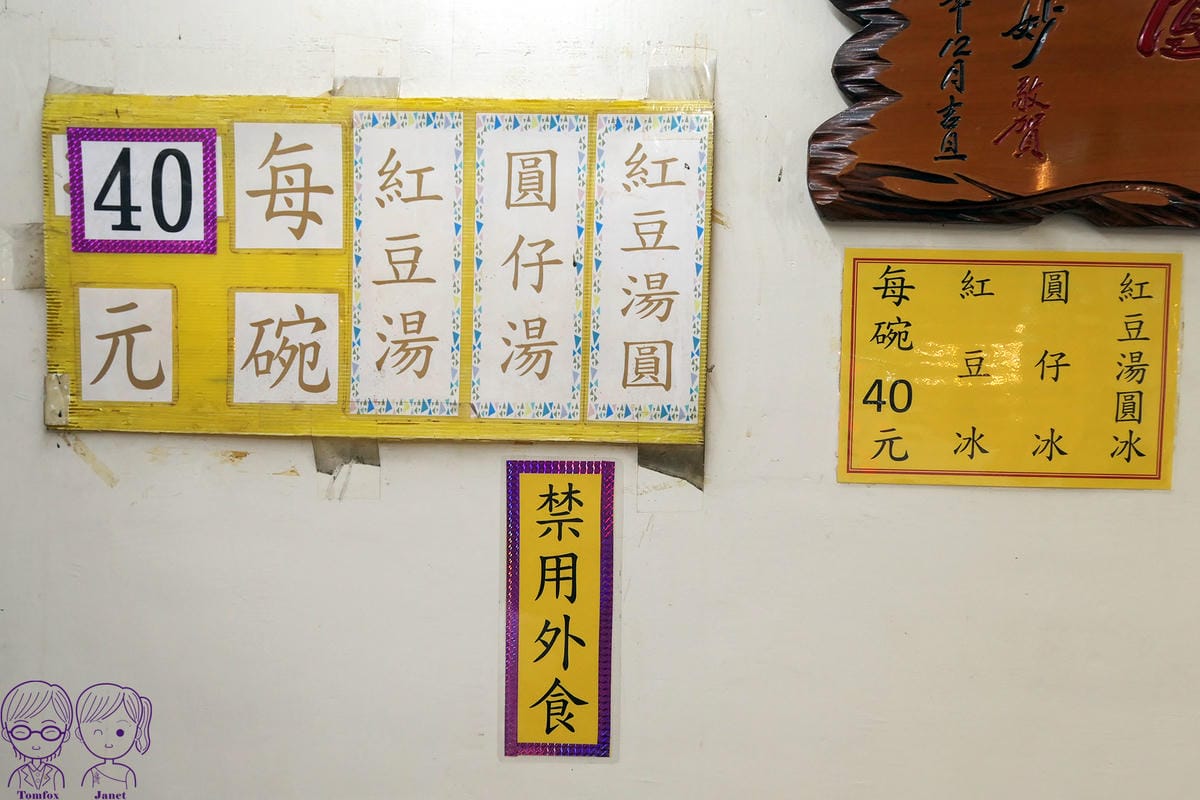 紅豆湯圓
圓仔湯
紅豆湯
每碗
40元
年12月吉旦
妙
敬賀
紅豆湯圓冰
圓仔冰
紅豆冰
每碗40元
禁用外食
Tomfox
Janet